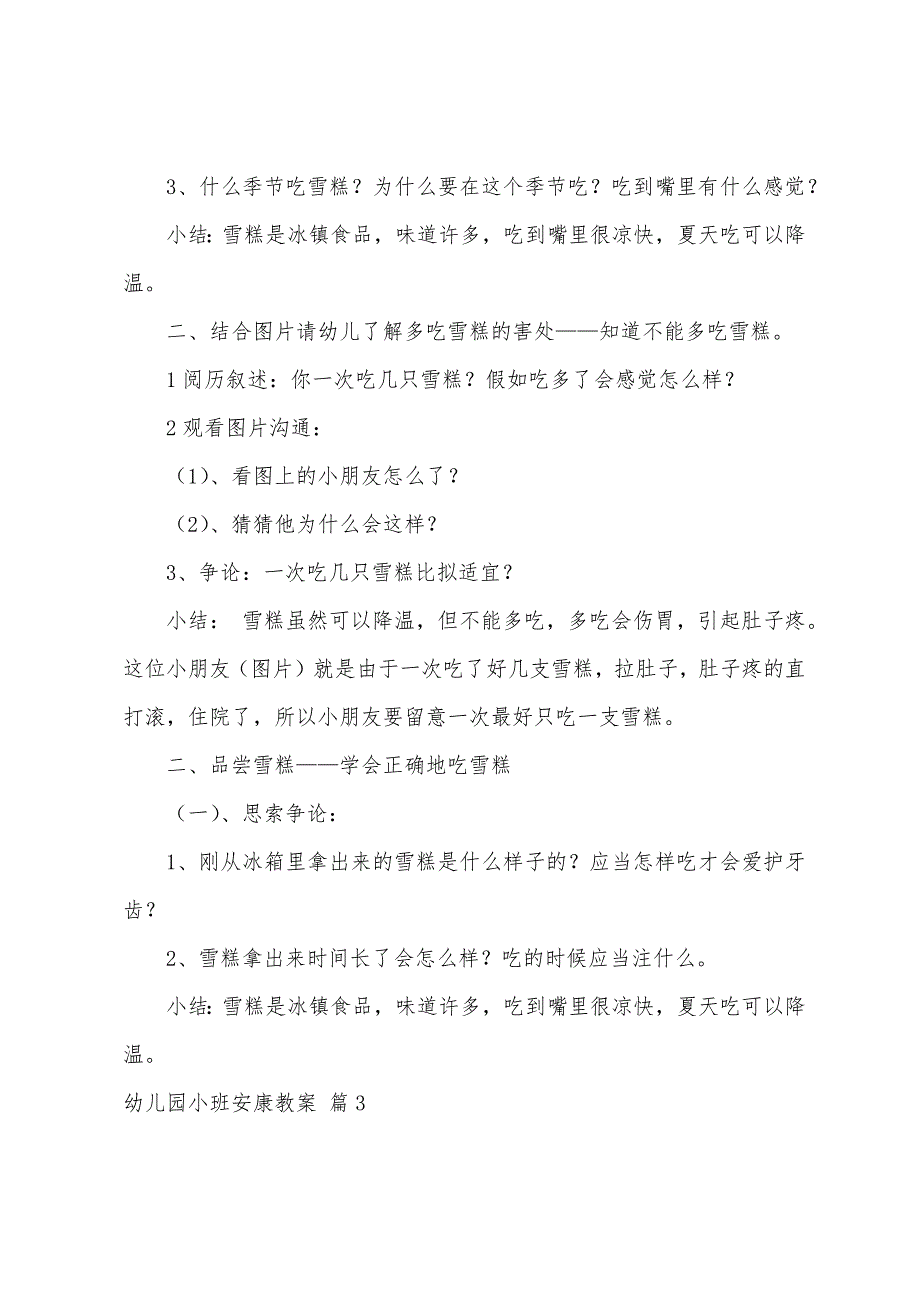 3、什么季节吃雪糕？为什么要在这个季节吃？吃到嘴里有什么感觉？
小结：雪糕是冰镇食品，味道许多，吃到嘴里很凉快，夏天吃可以降
温。
二、结合图片请幼儿了解多吃雪糕的害处——知道不能多吃雪糕。
1 阅历叙述：你一次吃几只雪糕？假如吃多了会感觉怎么样？
2 观看图片沟通：
（1）、看图上的小朋友怎么了？
（2）、猜猜他为什么会这样？
3、争论：一次吃几只雪糕比拟适宜？
小结： 雪糕虽然可以降温，但不能多吃，多吃会伤胃，引起肚子疼。
这位小朋友（图片）就是由于一次吃了好几支雪糕，拉肚子，肚子疼的直
打滚，住院了，所以小朋友要留意一次最好只吃一支雪糕。
二、品尝雪糕——学会正确地吃雪糕
（一）、思索争论：
1、刚从冰箱里拿出来的雪糕是什么样子的？应当怎样吃才会爱护牙
齿？
2、雪糕拿出来时间长了会怎么样？吃的时候应当注什么。
小结：雪糕是冰镇食品，味道许多，吃到嘴里很凉快，夏天吃可以降
温。
幼儿园小班安康教案 篇 3